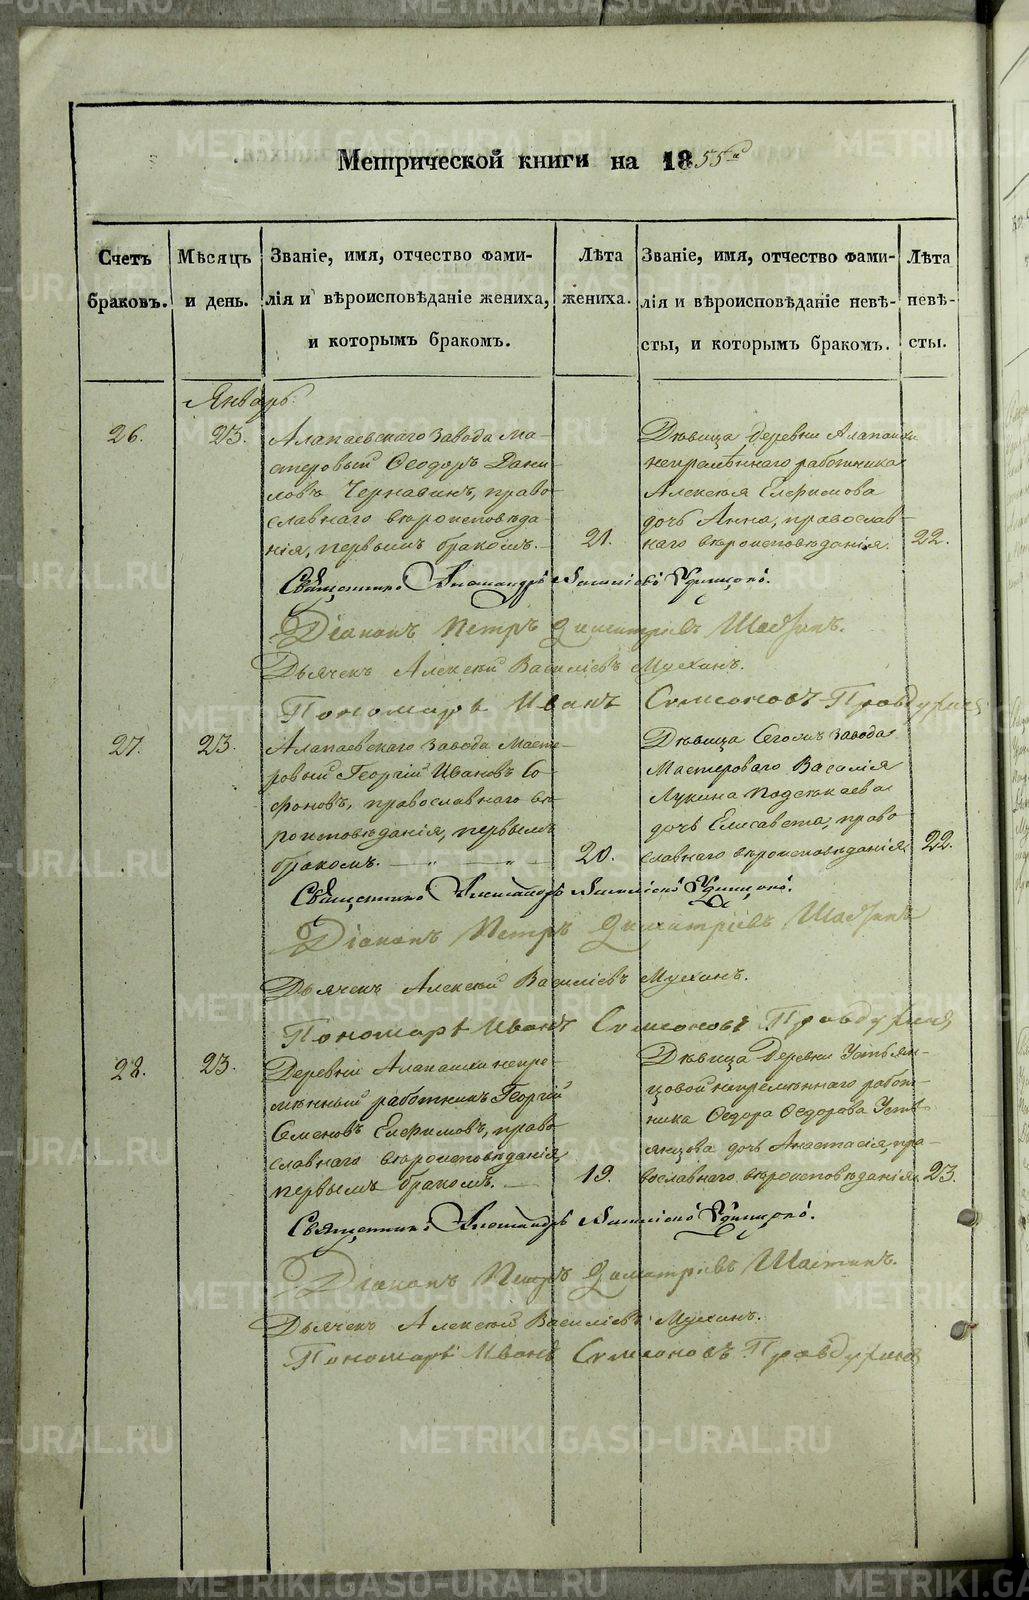 Метрической книги на 1855й
Счетъ браковъ.
Мѣсяцъ и день.
Званіе, имя, отчество фами-
лія и вѣроисповѣданіе жениха,
и которымъ бракомъ.
Лѣта жениха.
Званіе, имя, отчество фами-
лія и вѣроисповѣданіе невѣ-
сты, и которымъ бракомъ.
Лѣта невѣ-
сты.
Январь.
26.
23.
Алапаевскаго завода ма-
стеровый Ѳеодоръ Дани-
ловъ Чернавинъ, право-
славнаго вѣроисповѣда-
нія, первымъ бракомъ.
21.
Дѣвица деревни Алапаихи
непремѣннаго работника
Алексѣя Елфимова
дочь Анна, православ-
наго вѣроисповѣданія.
22.
Священникъ Александръ Удинцовъ.
Діаконъ Петръ Димитріевъ
Дьячекъ Алексѣй Василіевъ Мухинъ.
Пономарь Иванъ Симеоновъ Правдухинъ
27.
23.
Алапаевскаго завода Масте-
ровый Георгій Ивановъ Со-
фоновъ, православнаго вѣ-
роисповѣданія, первымъ
бракомъ. — „ — „ —
20.
Дѣвица Сегожъ завода
Мастероваго Василія
Лукина Подсѣкаева
дочь Елисавета, право-
славнаго вѣроисповѣданія.
22.
Священникъ Александръ Удинцовъ.
Діаконъ Петръ Димитріевъ
Дьячекъ Алексѣй Василіевъ Мухинъ.
Пономарь Иванъ Симеоновъ Правдухинъ
28.
23.
Деревни Алапаихи непре-
мѣнный работникъ Георгій
Семеновъ Елфимовъ, право-
славнаго вѣроисповѣданія,
первымъ бракомъ. —
19.
Дѣвица Деревни Устьян-
цовой непремѣннаго работ-
ника Ѳедора Ѳедорова Усть-
янцова дочь Анастасія, пра-
вославнаго вѣроисповѣданія.
23.
Священникъ Александръ Удинцовъ.
Діаконъ Петръ Димитріевъ
Дьячекъ Алексѣй Василіевъ Мухинъ.
Пономарь Иванъ Симеоновъ Правдухинъ
METRIKI.GASO-URAL.RU